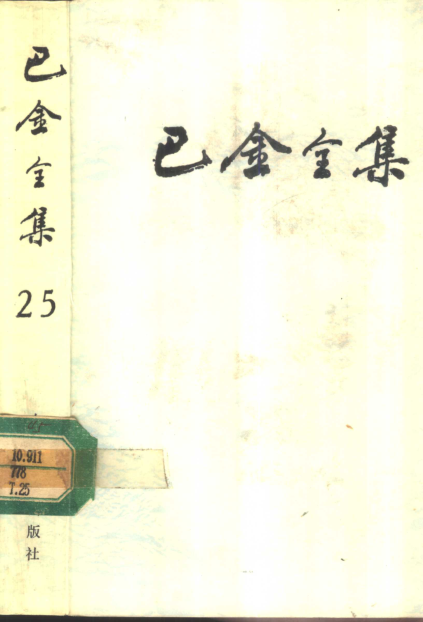 巴金全集
25
10.911
778
7.25
版社
巴金全集